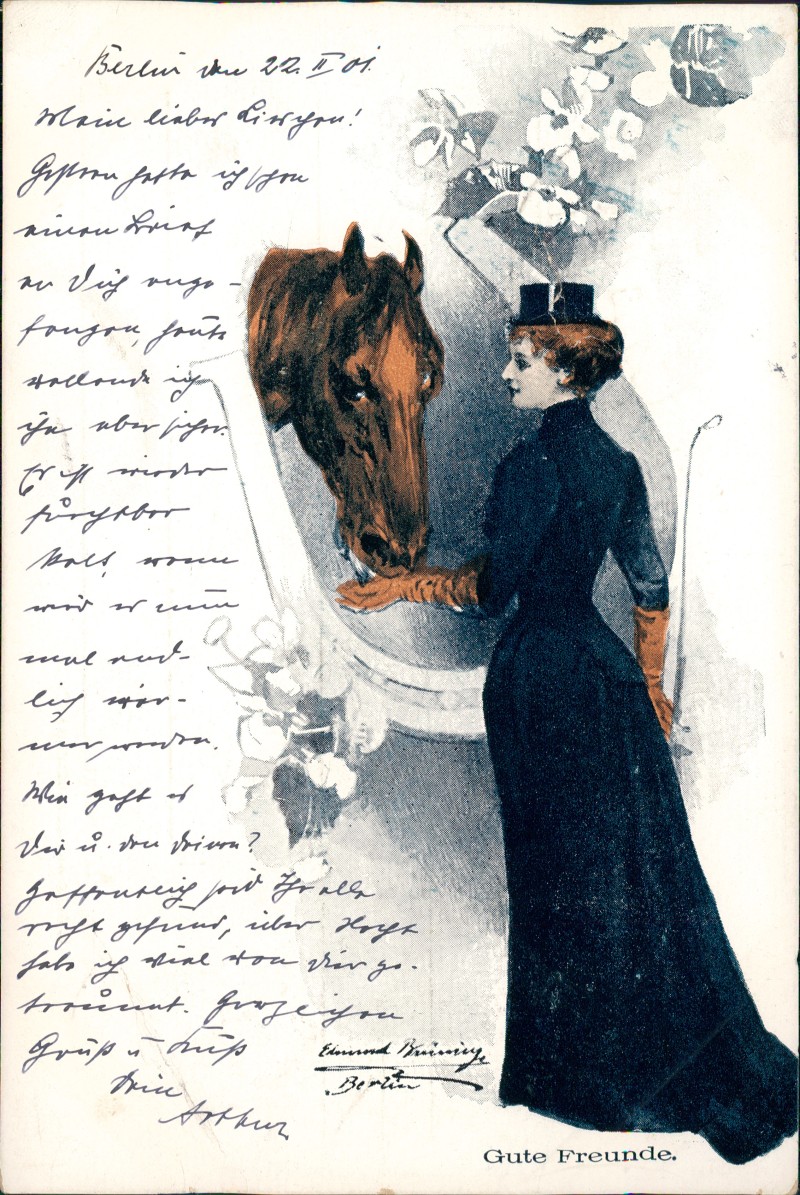 Berlin den 22. II 01.
Mein liebes Lieschen!
Gestern hatte ich schon
einen Brief
an Dich ange-
fangen, heute
vollende ich
ihn aber sicher.
Es ist wieder
furchtbar
kalt, wann
wird es nun
mal end-
lich wär-
mer werden.
Wie geht es
Dir u. den Deinen?
Hoffentlich seid Ihr alle
recht gesund, über Nacht
habe ich viel von Dir ge-
träumt. Herzlichen
Gruß u Kuß
Dein
Arthur
Edmund Brüning
Berlin
Gute Freunde.